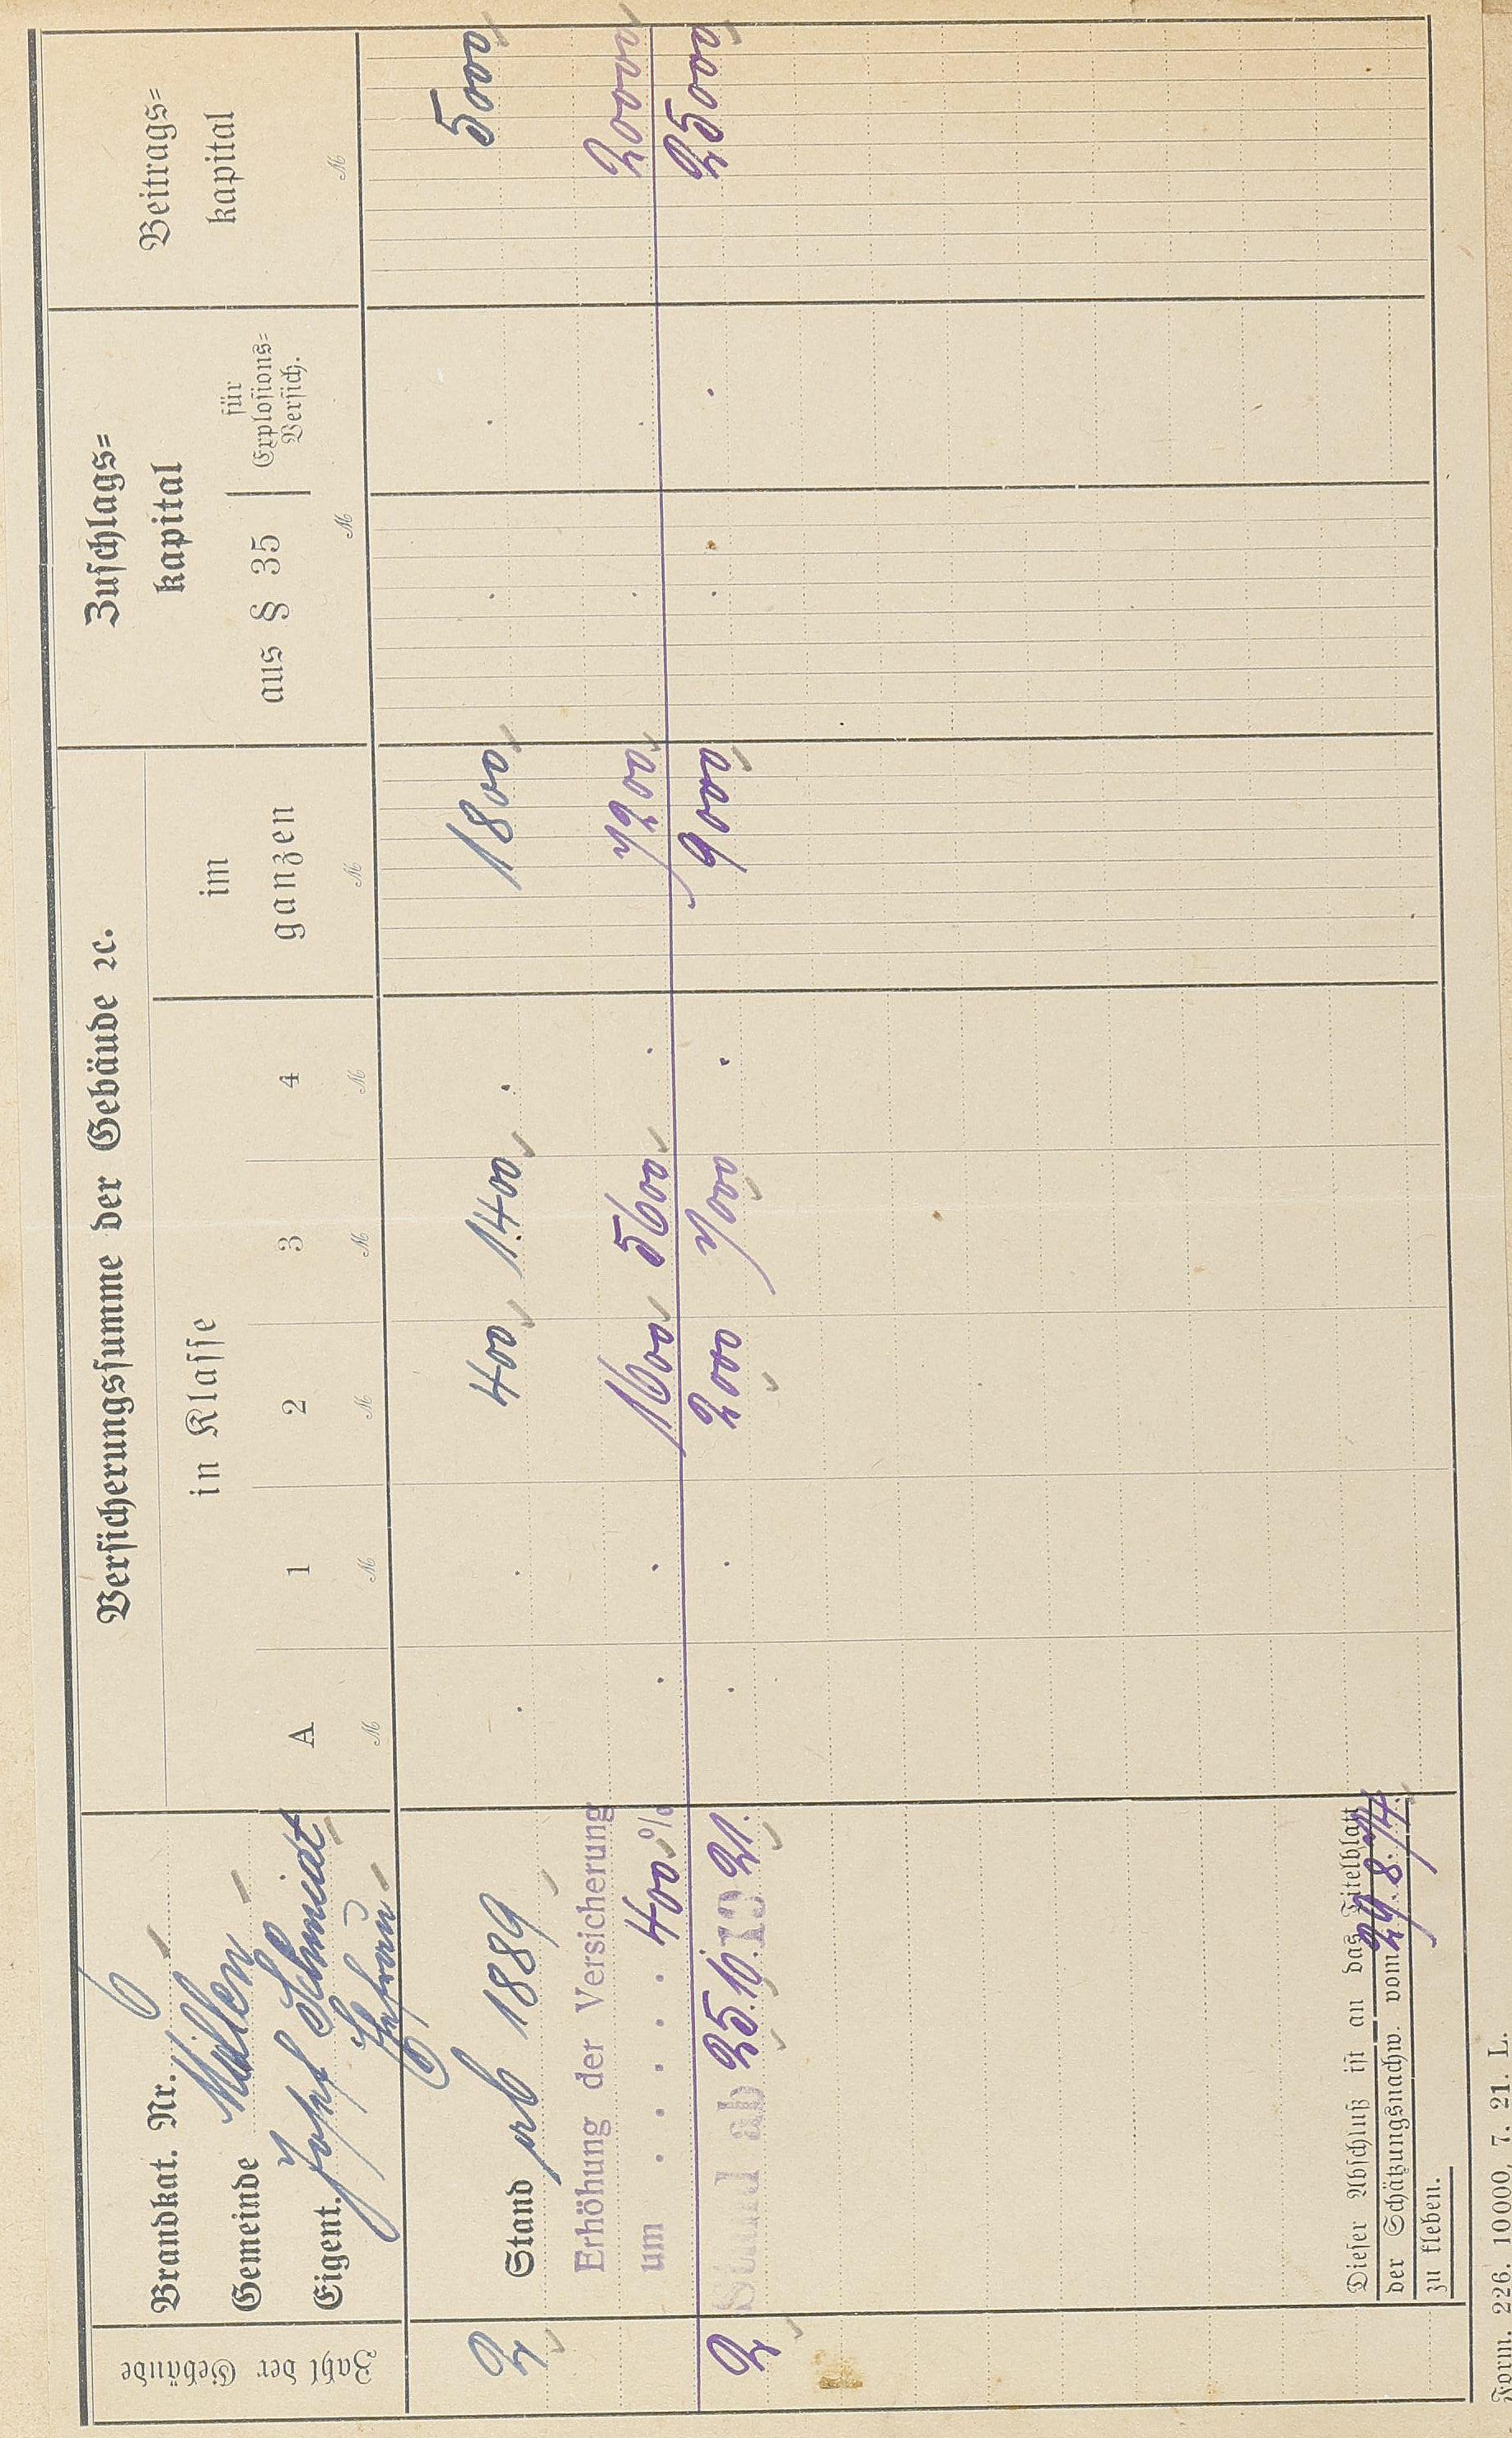 Zahl der Gebäude
Brandkat. Nr. 6
Gemeinde Müllen
Eigent. Josef Schmidt
Ehefrau
Versicherungssumme der Gebäude ꝛc.
in Klasse
A 1 2 3 4
im
ganzen
Zuschlags=
kapital
aus § 35
für
Explosions=
Versich.
Beitrags=
kapital
ℳ ℳ ℳ ℳ ℳ ℳ ℳ ℳ
2 Stand ab 1889 . . 400 1400 . 1800 . . 5000
Erhöhung der Versicherung
um . . . . 400 % . . 1600 5600 . 7200 . . 20000
2 Stand ab 25.10.1921. . . 2000 7000 . 9000 . . 25000
Dieser Abschluß ist an das Titelblatt
der Schätzungsnachw. vom 29.8.74.
zu kleben.
Form. 226. 10000, 7. 21. L.